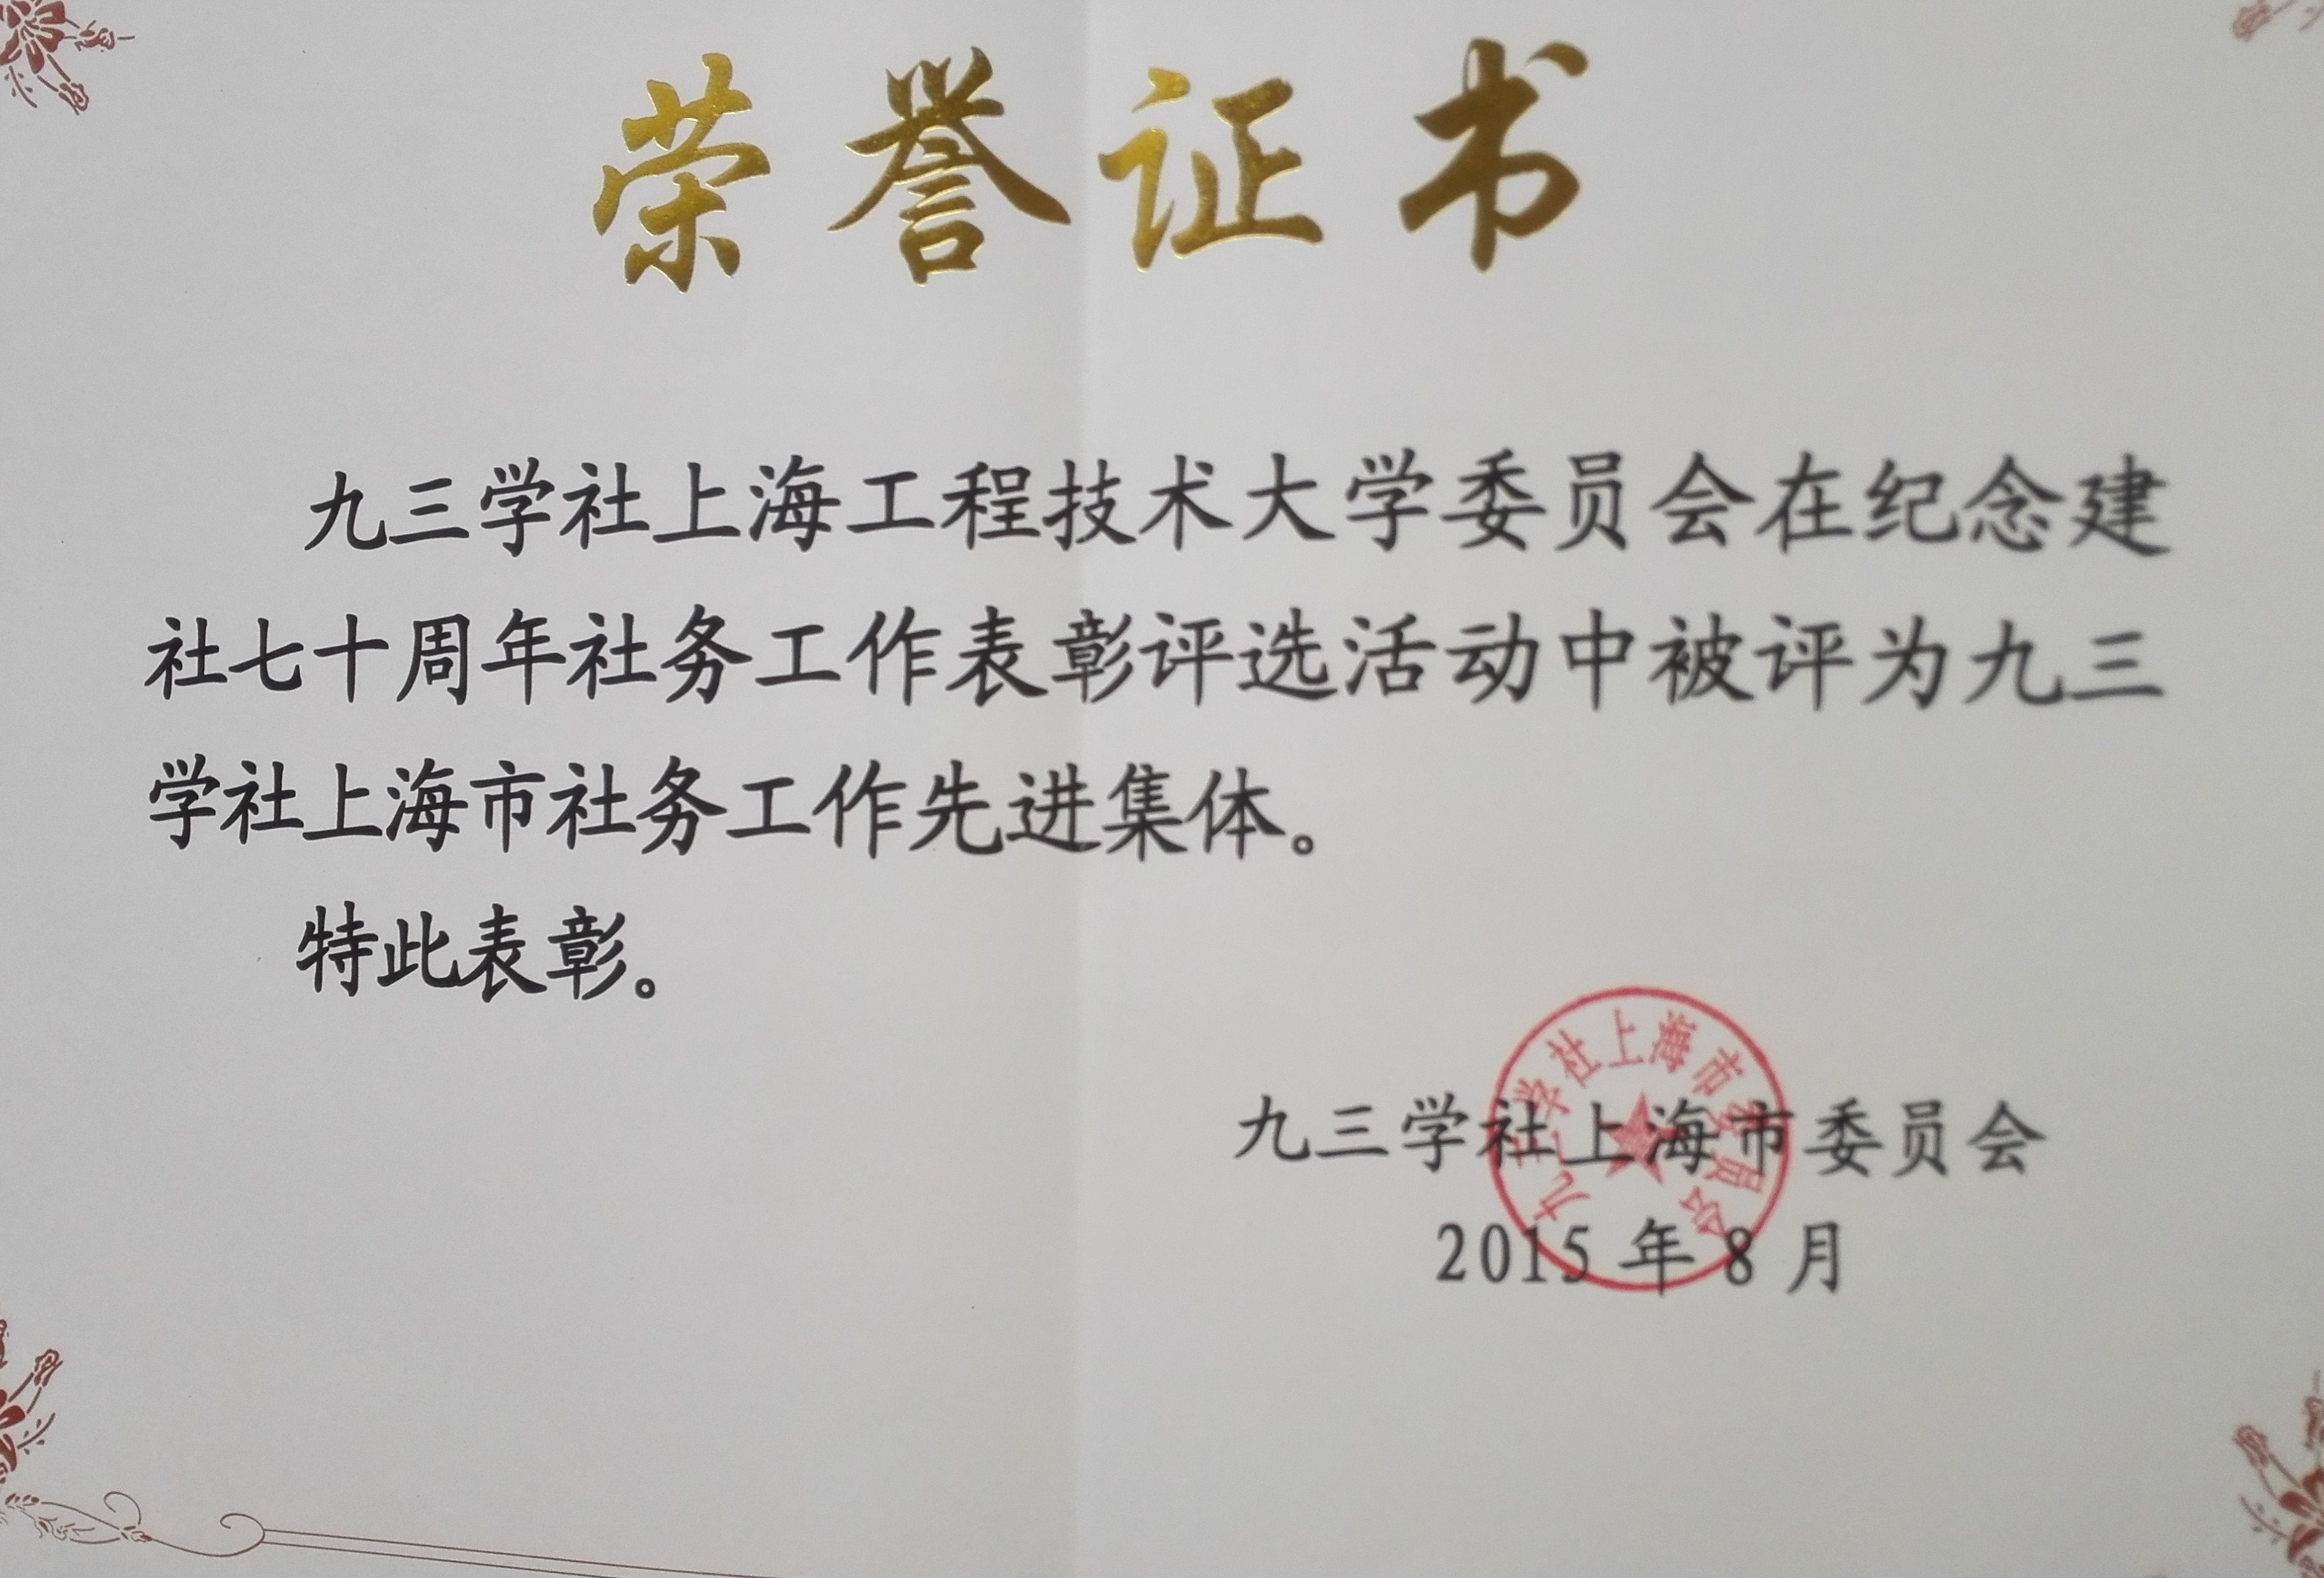 荣誉证书
九三学社上海工程技术大学委员会在纪念建
社七十周年社务工作表彰评选活动中被评为九三
学社上海市社务工作先进集体。
特此表彰。
九三学社上海市委员会
九三学社上海市委员会
2015 年 8 月